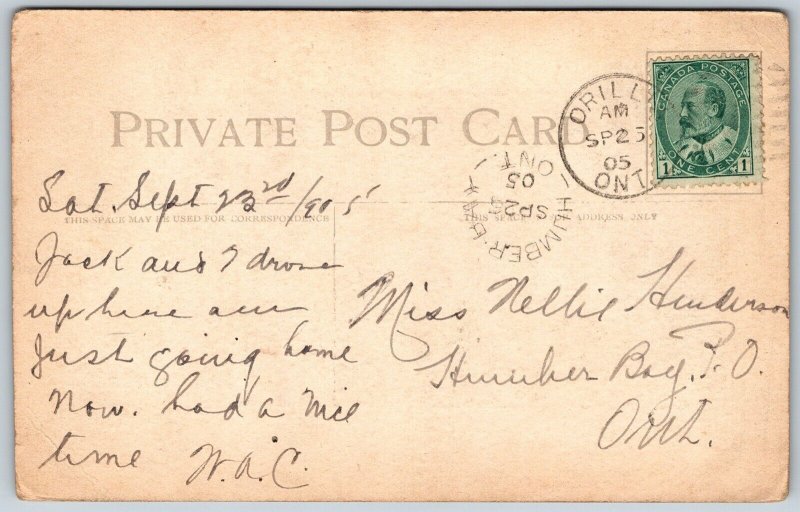 PRIVATE POST CARD
CANADA POSTAGE
1 ONE CENT 1
ORILL
AM
SP 25
05
ONT
HUMBER BAY
SP 26
05
ONT.
THIS SPACE MAY BE USED FOR CORRESPONDENCE
THIS SPACE ADDRESS ONLY
Sat. Sept 23rd/905
Jack and I drove
up here am
Just going home
Now. had a nice
time W.A.C.
Miss Nellie Henderson
Humber Bay. P.O.
Ont.